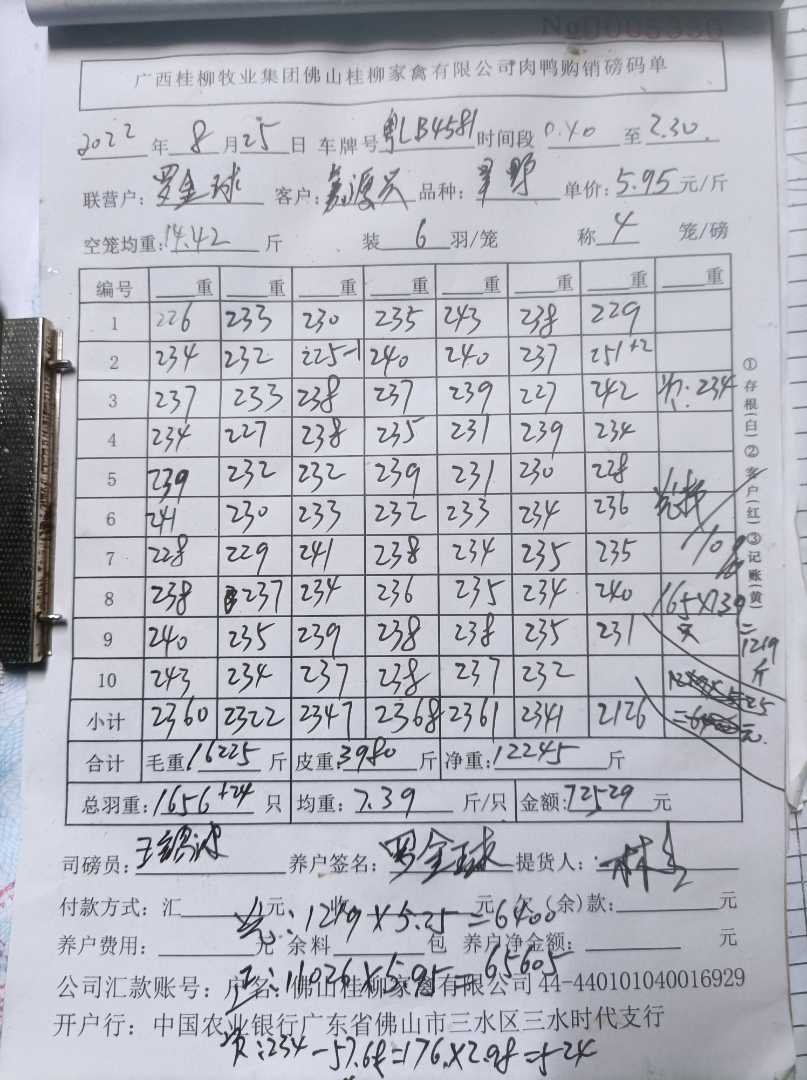 No0005330
广西桂柳牧业集团佛山桂柳家禽有限公司肉鸭购销磅码单
2022年8月25日 车牌号粤LB4581时间段0.40至2.30
联营户:罗金球 客户:嘉源兴 品种:半野 单价:5.95元/斤
空笼均重:14.42斤 装6羽/笼 称4笼/磅
编号 重 重 重 重 重 重 重 重
1 226 233 230 235 243 238 229
2 234 232 225-1 240 240 237 251+2
3 237 233 238 237 239 227 242 次:234
4 234 227 238 235 231 239 234
5 239 232 232 239 231 230 228
6 241 230 233 232 233 234 236
7 228 229 241 238 234 235 235
8 238 237 234 236 235 234 240 165×7.39
9 240 235 239 238 238 235 231 =1219斤
10 243 234 237 238 237 232
小计 2360 2322 2347 2368 2361 2341 2126
合计 毛重:16225斤 皮重:3980斤 净重:12245斤
总羽重:1656+24只 均重:7.39斤/只 金额:72529元
①存根(白)②客户(红)③记账(黄)
司磅员: 养户签名:罗金球 提货人:林
付款方式:汇 元 元 (余)款: 元
:1219×5.25=6400
养户费用: 元 余料 包 养户净金额: 元
正:11026×5.95=65605
公司汇款账号:户名:佛山桂柳家禽有限公司44-440101040016929
开户行:中国农业银行广东省佛山市三水区三水时代支行
次:234-57.68=176.×2.98=524